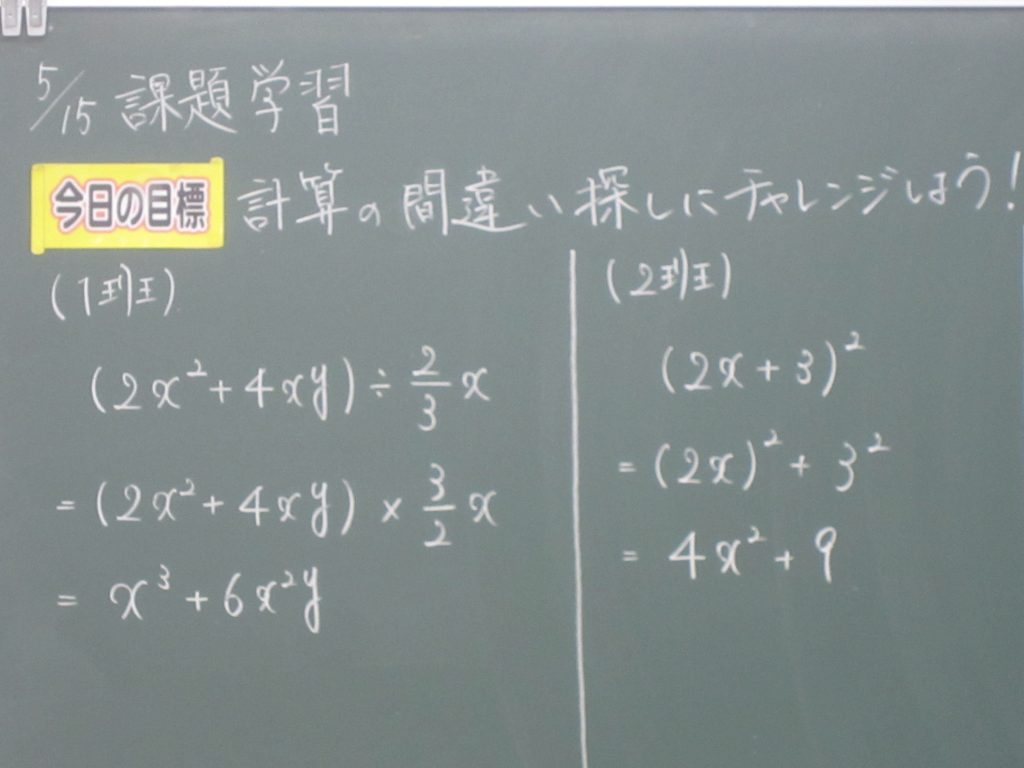 5/15 課題学習
今日の目標 計算の間違い探しにチャレンジしよう!
(1班)
(2x²+4xy)÷2/3x
=(2x²+4xy)×3/2x
=x³+6x²y
(2班)
(2x+3)²
=(2x)²+3²
=4x²+9